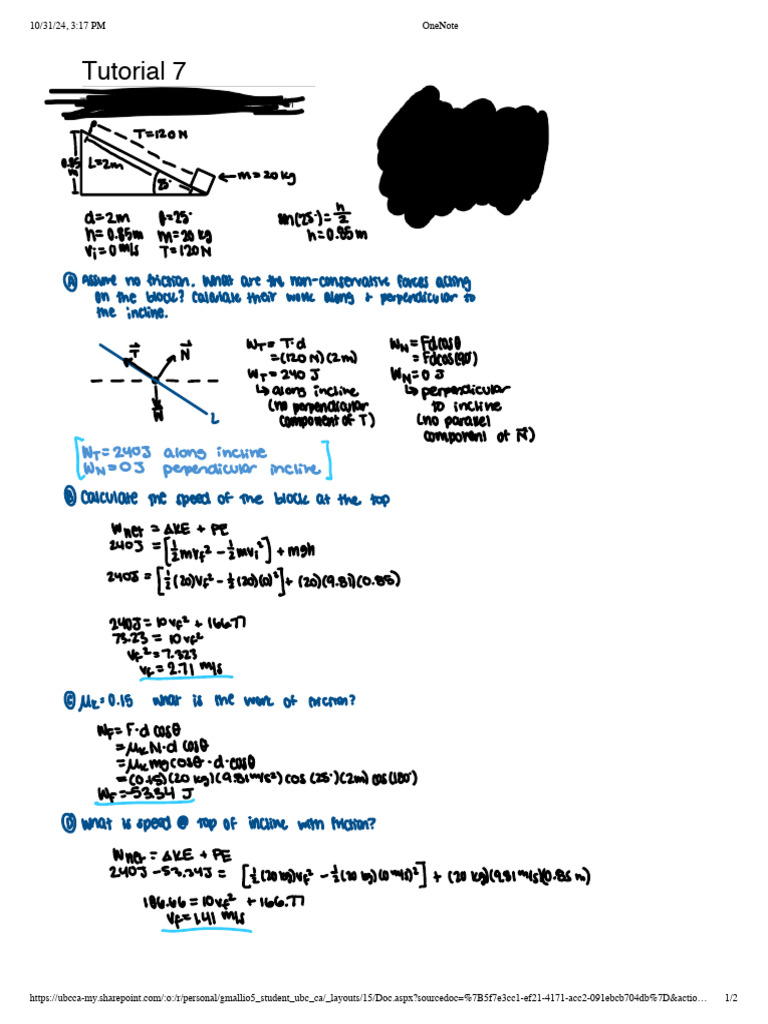 10/31/24, 3:17 PM
OneNote
Tutorial 7
T=120N
0.85 m
L=2m
25°
m=20kg
d=2m θ=25° sin(25°)=h/2
h=0.85m m=20 kg h=0.85m
vi=0 m/s T=120N
Ⓐ Assume no friction. What are the non-conservative forces acting
on the block? Calculate their work along + perpendicular to
the incline.
T N
L
WT = T·d
=(120 N)(2m)
WT = 240 J
↳ along incline
(no perpendicular
component of T)
WN = Fdcosθ
= Fdcos(90°)
WN = 0 J
↳ perpendicular
to incline
(no parallel
component of N)
WT = 240J along incline
WN = 0J perpendicular incline
Ⓑ Calculate the speed of the block at the top
Wnet = ΔKE + PE
240J = [½mvf² - ½mvi²] + mgh
240J = [½(20)vf² - ½(20)(0)²] + (20)(9.81)(0.85)
240J = 10vf² + 166.77
73.23 = 10vf²
vf² = 7.323
vf = 2.71 m/s
Ⓒ μk = 0.15 what is the work of friction?
Wf = F·d cosθ
= μk N·d cosθ
= μk mg cosθ · d · cosθ
= (0.15)(20 kg)(9.81 m/s²) cos (25°)(2m) cos(180°)
Wf = -53.34 J
Ⓓ What is speed @ top of incline with friction?
Wnet = ΔKE + PE
240J - 53.34J = [½(20kg)vf² - ½(20 kg)(0 m/s)²] + (20 kg)(9.81 m/s)(0.85 m)
186.66 = 10vf² + 166.77
vf = 1.41 m/s
https://ubcca-my.sharepoint.com/:o:/r/personal/gmallio5_student_ubc_ca/_layouts/15/Doc.aspx?sourcedoc=%7B5f7e3cc1-ef21-4171-acc2-091ebcb704db%7D&actio…
1/2